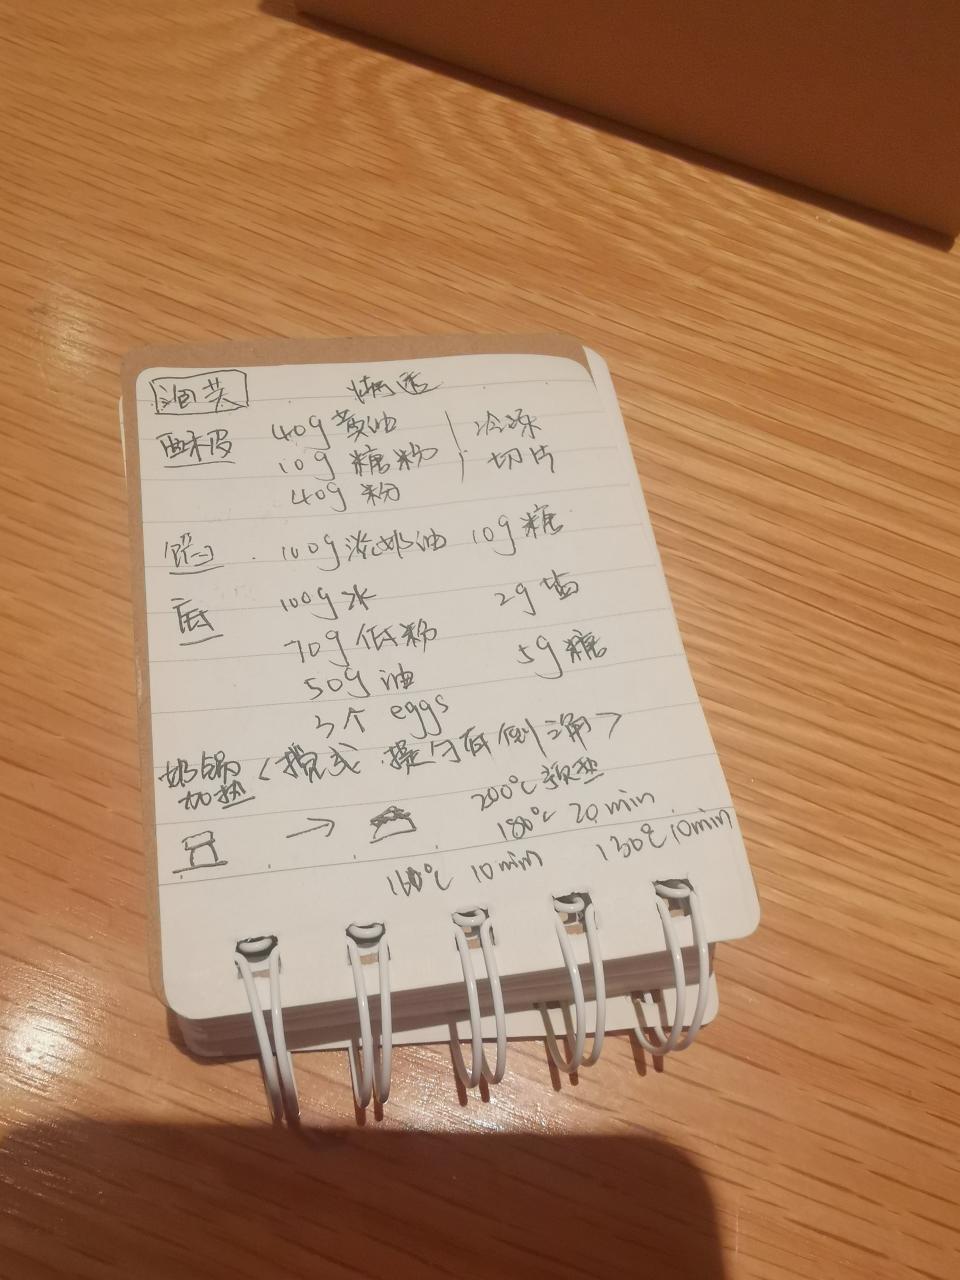 泡芙 烤透
酥皮 40g 黄油 冷冻
10g 糖粉 切片
40g 粉
馅 100g 淡奶油 10g 糖
底 100g 水 2g 盐
70g 低粉 5g 糖
50g 油
3个 eggs
奶锅 搅 低倒三角
加热 200℃ 预热
180℃ 20 min
10 min 130℃ 10min